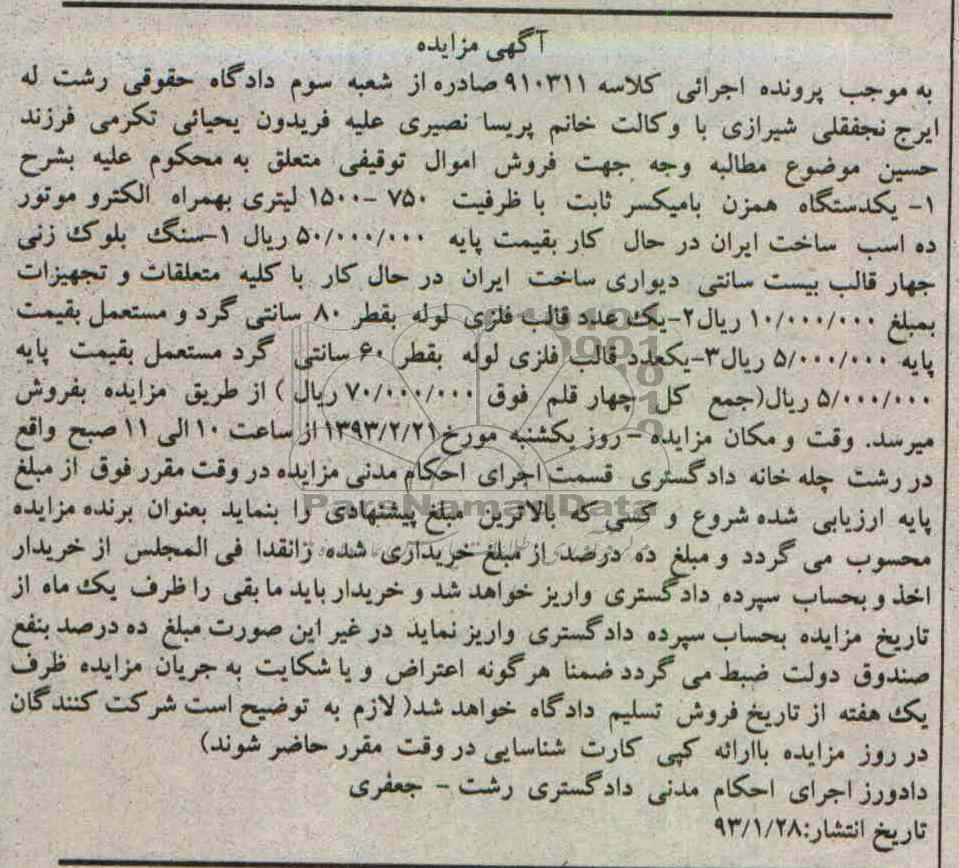 آگهی مزایده
به موجب پرونده اجرائی کلاسه ۹۱۰۳۱۱ صادره از شعبه سوم دادگاه حقوقی رشت له
ایرج نجفقلی شیرازی با وکالت خانم پریسا نصیری علیه فریدون یحیائی تکرمی فرزند
حسین موضوع مطالبه وجه جهت فروش اموال توقیفی متعلق به محکوم علیه بشرح
۱- یکدستگاه همزن بامیکسر ثابت با ظرفیت ۷۵۰ -۱۵۰۰ لیتری بهمراه الکترو موتور
ده اسب ساخت ایران در حال کار بقیمت پایه ۵۰/۰۰۰/۰۰۰ ریال ۱-سنگ بلوک زنی
چهار قالب بیست سانتی دیواری ساخت ایران در حال کار با کلیه متعلقات و تجهیزات
بمبلغ ۱۰/۰۰۰/۰۰۰ ریال۲-یک عدد قالب فلزی لوله بقطر ۸۰ سانتی گرد و مستعمل بقیمت
پایه ۵/۰۰۰/۰۰۰ ریال۳-یکعدد قالب فلزی لوله بقطر ۶۰ سانتی گرد مستعمل بقیمت پایه
۵/۰۰۰/۰۰۰ ریال(جمع کل چهار قلم فوق ۷۰/۰۰۰/۰۰۰ ریال ) از طریق مزایده بفروش
میرسد. وقت و مکان مزایده -روز یکشنبه مورخ ۱۳۹۳/۲/۲۱ از ساعت ۱۰ الی ۱۱ صبح واقع
در رشت چله خانه دادگستری قسمت اجرای احکام مدنی مزایده در وقت مقرر فوق از مبلغ
پایه ارزیابی شده شروع و کسی که بالاترین مبلغ پیشنهادی را بنماید بعنوان برنده مزایده
ParsNamadData
محسوب می گردد و مبلغ ده درصد از مبلغ خریداری شده رانقدا فی المجلس از خریدار
اخذ و بحساب سپرده دادگستری واریز خواهد شد و خریدار باید ما بقی را ظرف یک ماه از
تاریخ مزایده بحساب سپرده دادگستری واریز نماید در غیر این صورت مبلغ ده درصد بنفع
صندوق دولت ضبط می گردد ضمنا هرگونه اعتراض و یا شکایت به جریان مزایده ظرف
یک هفته از تاریخ فروش تسلیم دادگاه خواهد شد( لازم به توضیح است شرکت کنندگان
در روز مزایده باارائه کپی کارت شناسایی در وقت مقرر حاضر شوند)
دادورز اجرای احکام مدنی دادگستری رشت - جعفری
تاریخ انتشار:۹۳/۱/۲۸